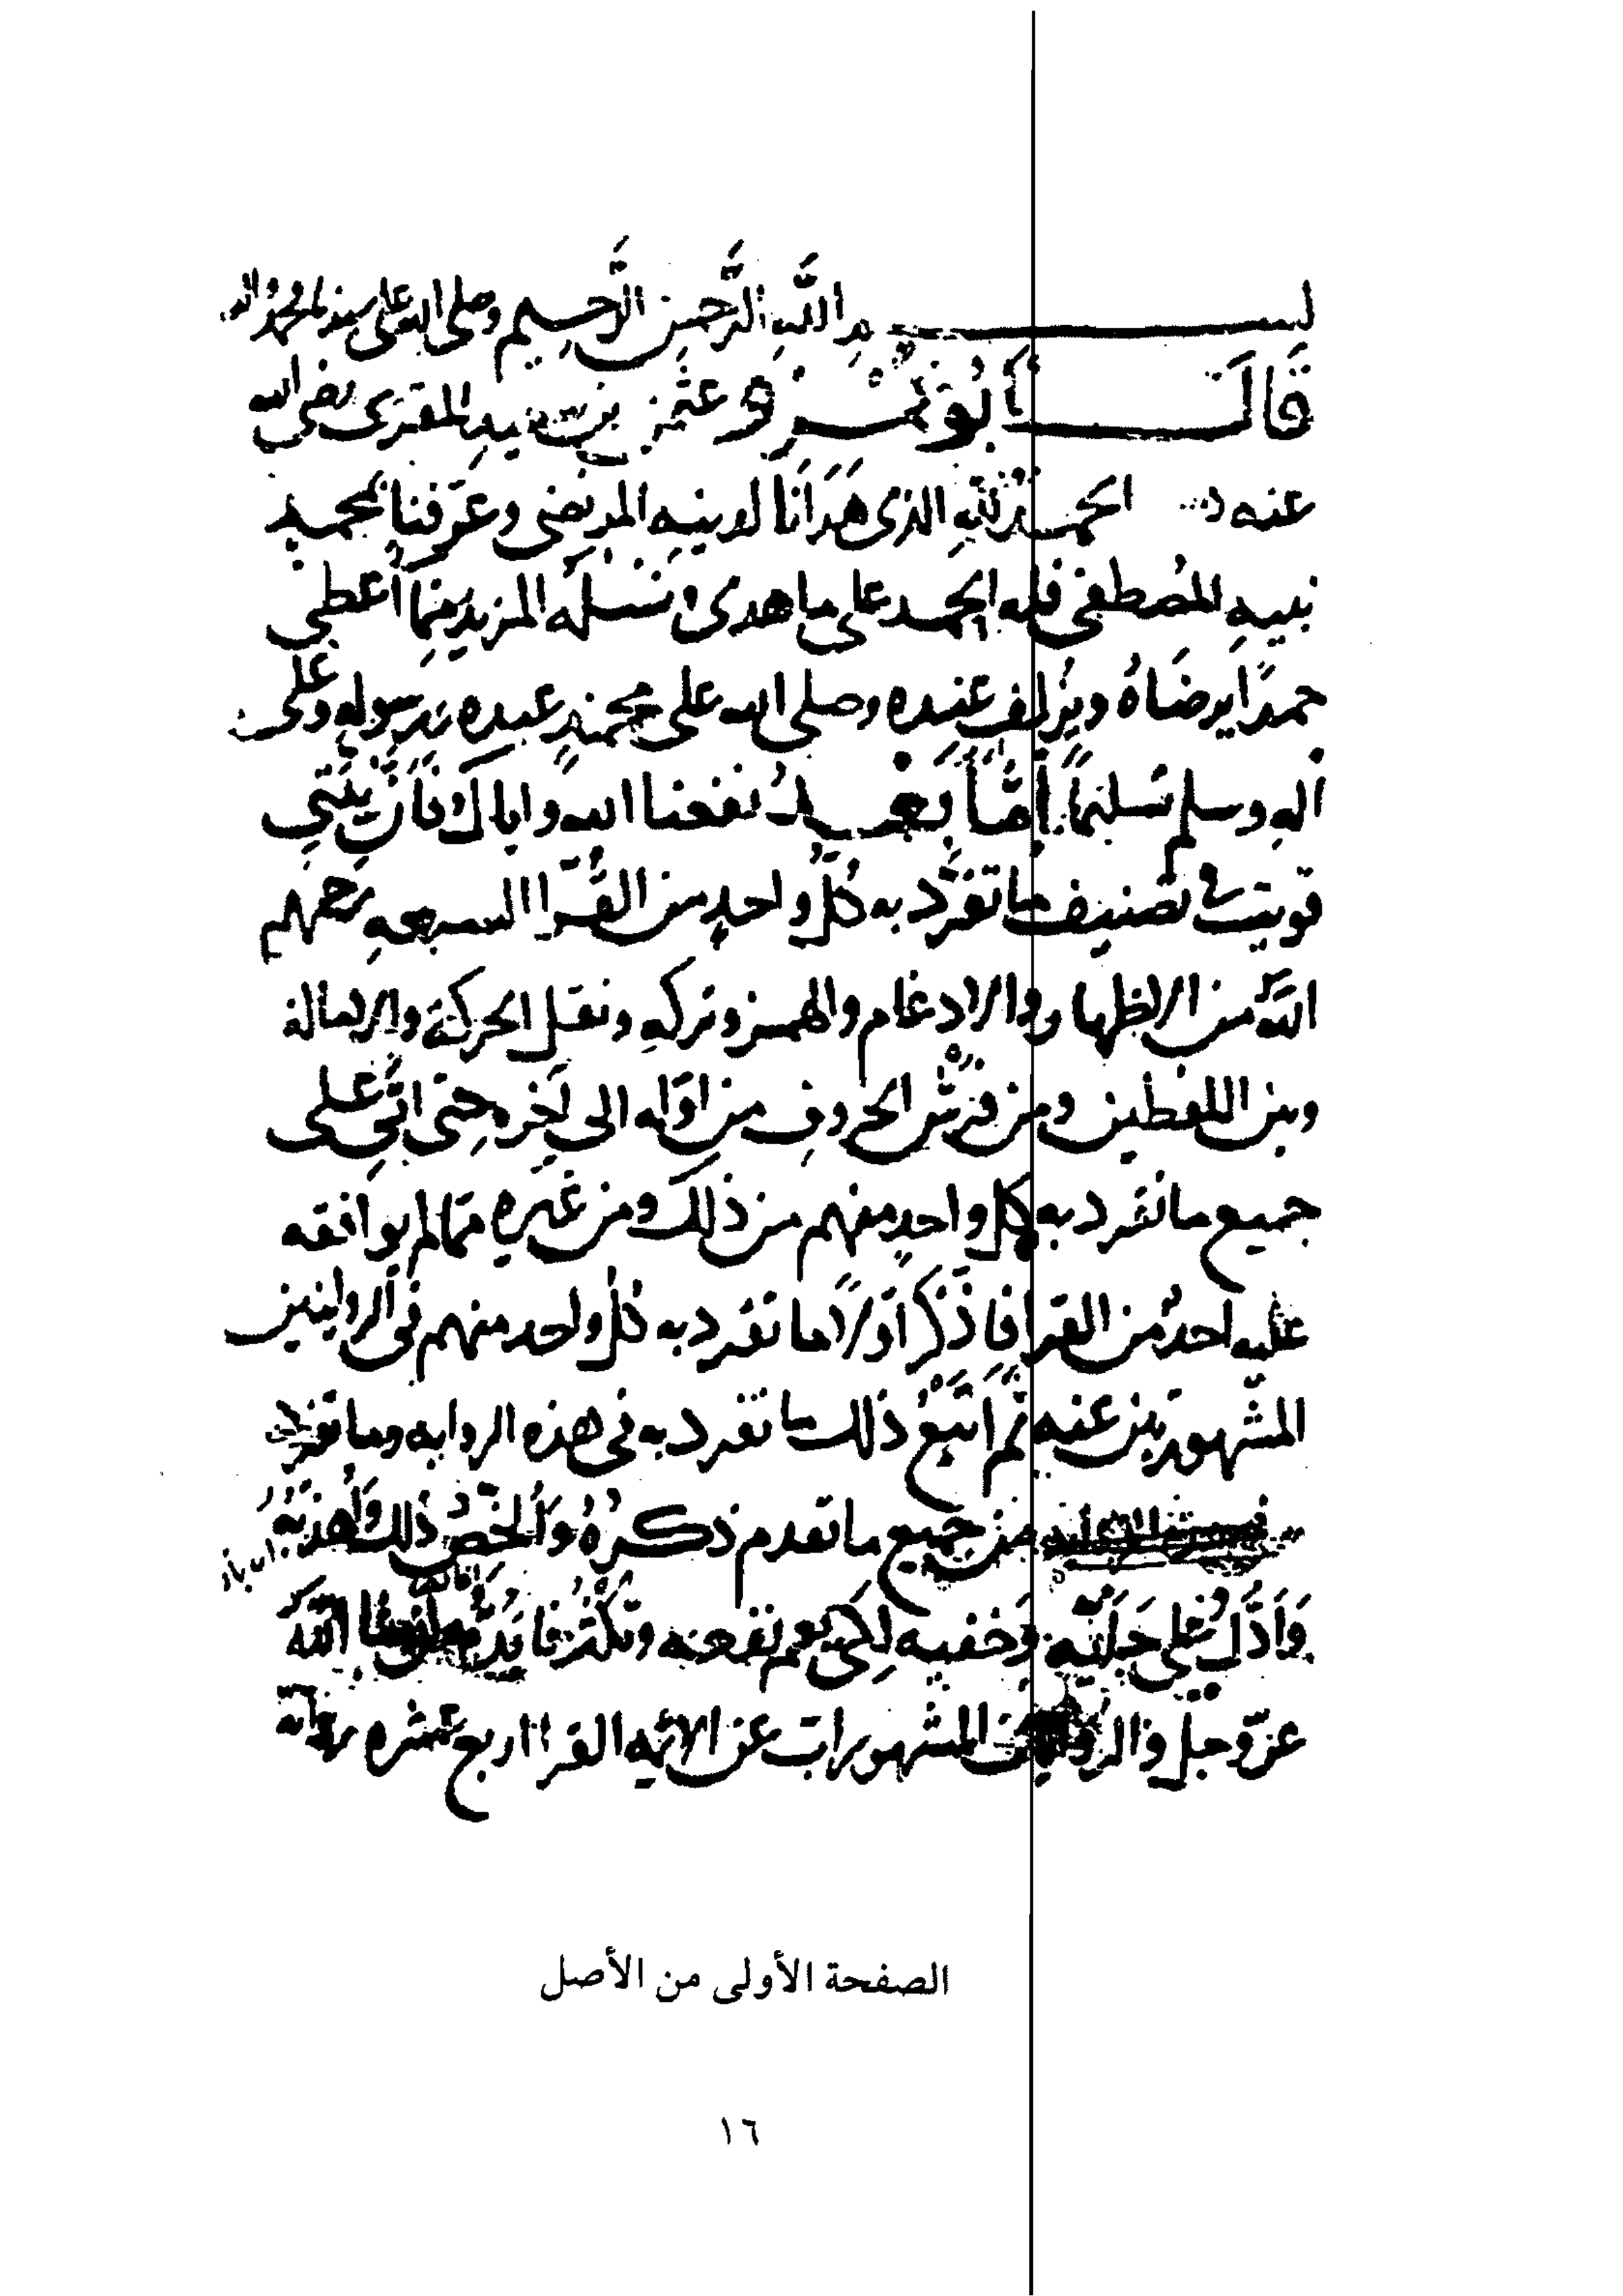 بسم الله الرحمن الرحيم وصلى الله على سيدنا محمد واله
قال أبو عمرو عثمن بن سعيد المقرى رضى الله
عنه الحمد لله الذى هَدَانا لدينه المرتضى وعرّفنا بمحمد
نبيه المصطفى فله الحمد على ما هدى ونسله المزيد مما أعطى
حمدًا يرضَاهُ ويزلف عنده وصلى الله على محمد عبده ورسوله وعلى
آله وسلم تسليمًا أمّا بعد نفعنا الله واياك فان نيتي
قويت في تصنيف ما تفرّد به كل واحد من القرا السبعه رحمهم
الله من الاظهار والادغام والهمز وتركه ونقل الحركة والامالة
وبين اللفظين ومن فرش الحروف من اوّله الى آخره حتى اتى على
جميع ما تفرد به كل واحد منهم من ذلك ومن غيره مما لم يوافقه
عليه احد من القرا فاذكر اوّلا ما تفرد به كل واحد منهم فى الروايتين
المشهورتين عنه ثم اتبع ذلك ما تفرد به فى هذه الروايه وما تفرد
من جميع ما تقدم ذكره وألخص ذلك وأهذبه
وَأدُلّ على جَليّه وَخفيه لكى يعم نفعه وتكثر فايدته الله
عزّ وجل والروايات المشهورات عن الائمه القرا اربع عشره رواية
الصفحة الأولى من الأصل
١٦